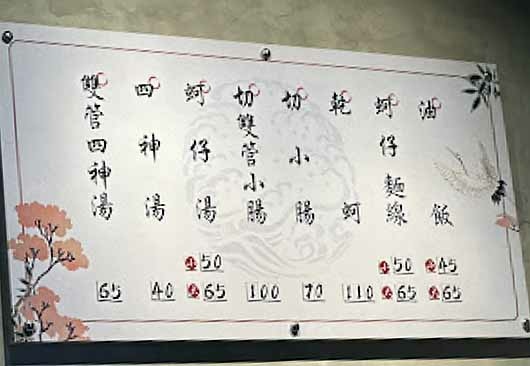 油飯 小45 大65
蚵仔麵線 小50 大65
乾蚵 110
切小腸 70
切雙管小腸 100
蚵仔湯 小50 大65
四神湯 40
雙管四神湯 65